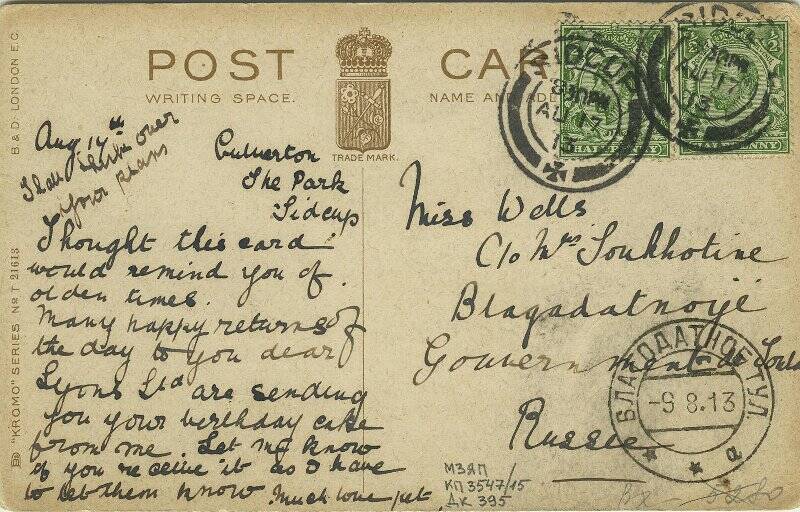 POST CAR
WRITING SPACE.
NAME AND ADD
TRADE MARK.
B & D. LONDON E.C.
"KROMO" SERIES No T 21613
SIDCUP
8 30 PM
AU 17
13
HALFPENNY
Aug 17th
your plans
The Park
Sidcup
Thought this card
would remind you of
olden times.
Many happy returns of
the day to you dear
Lyons Ltd are sending
you your birthday cake
from me. Let me know
if you receive it as I have
to let them know Much love pet
Miss Wells
C/o Mrs Soukhotine
Blagadatnoyé
Gouvernment de Toula
Russie
БЛАГОДАТНОЕ ТУЛ.
-9 8.13
МЗЯП
КП 3547/15
ДК 395